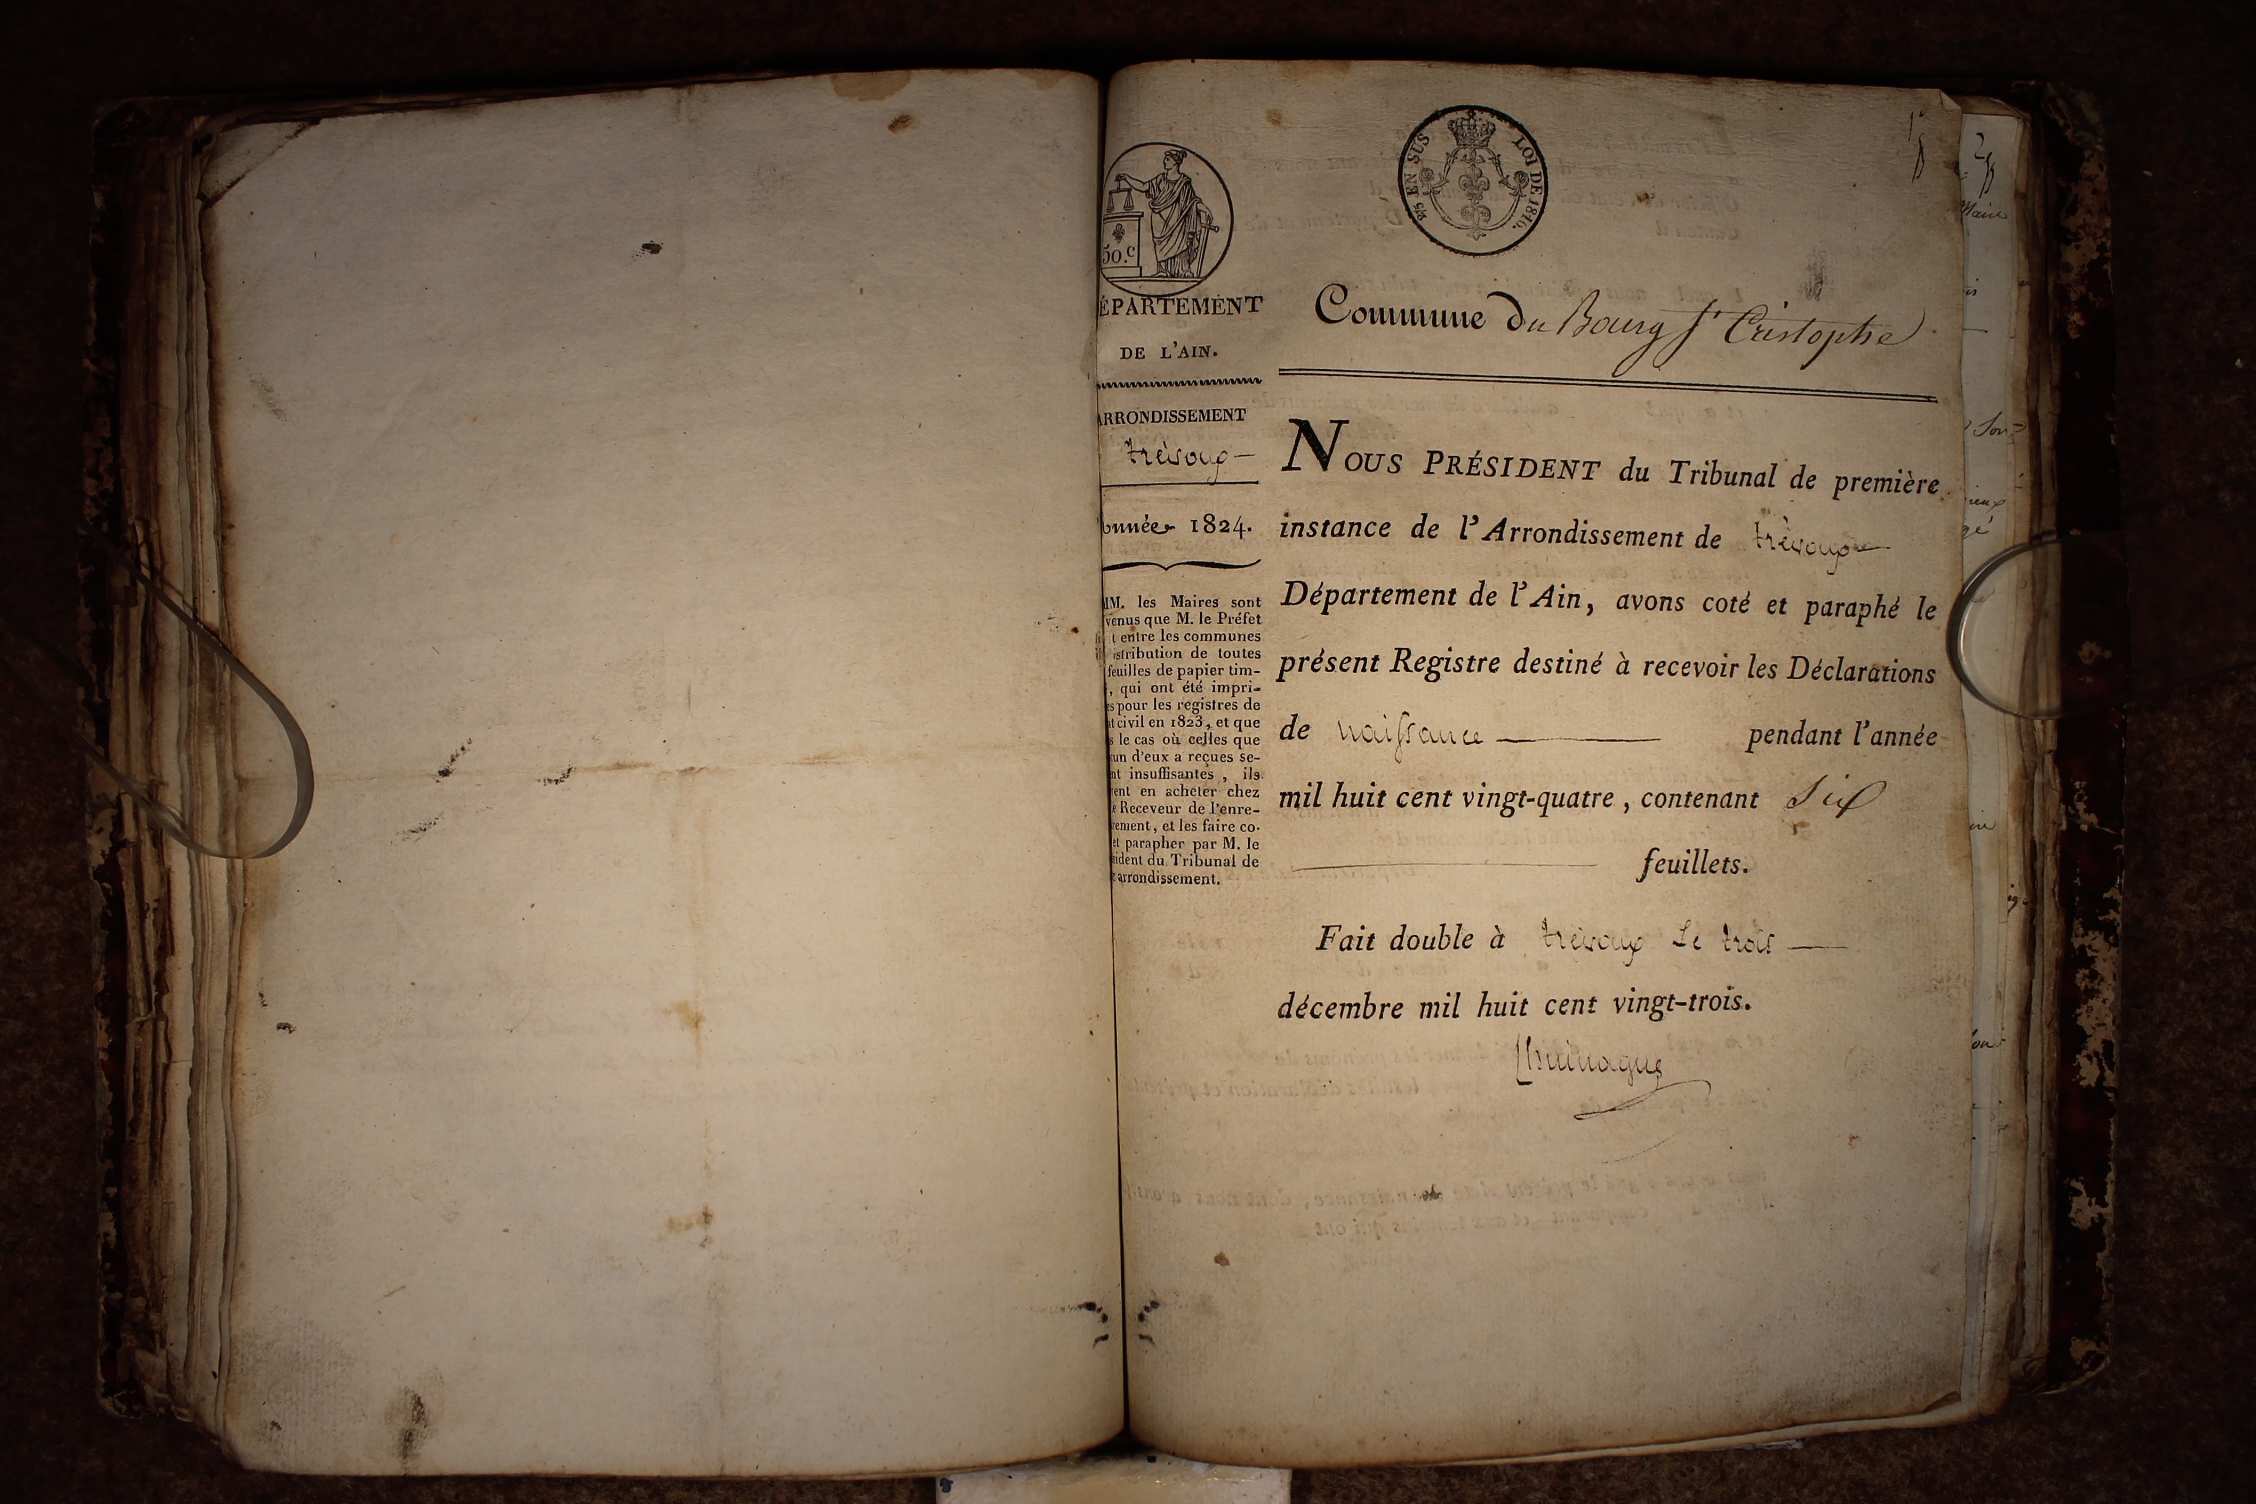 50.c
ÉPARTEMENT
DE L'AIN.
ARRONDISSEMENT
trévoux
Année 1824.
MM. les Maires sont
venus que M. le Préfet
t entre les communes
istribution de toutes
feuilles de papier tim-
, qui ont été impri-
es pour les registres de
at civil en 1823, et que
s le cas où celles que
cun d'eux a reçues se-
nt insuffisantes, ils
vent en acheter chez
e Receveur de l'enre-
rement, et les faire co-
et parapher par M. le
sident du Tribunal de
e arrondissement.
EN SUS
LOI DE 1816.
1er
Commune du Bourg St Cristophe
NOUS PRÉSIDENT du Tribunal de première
instance de l'Arrondissement de trévoux
Département de l'Ain, avons coté et paraphé le
présent Registre destiné à recevoir les Déclarations
de naissance pendant l'année
mil huit cent vingt-quatre, contenant six
feuillets.
Fait double à trévoux Le trois
décembre mil huit cent vingt-trois.
2
Maire